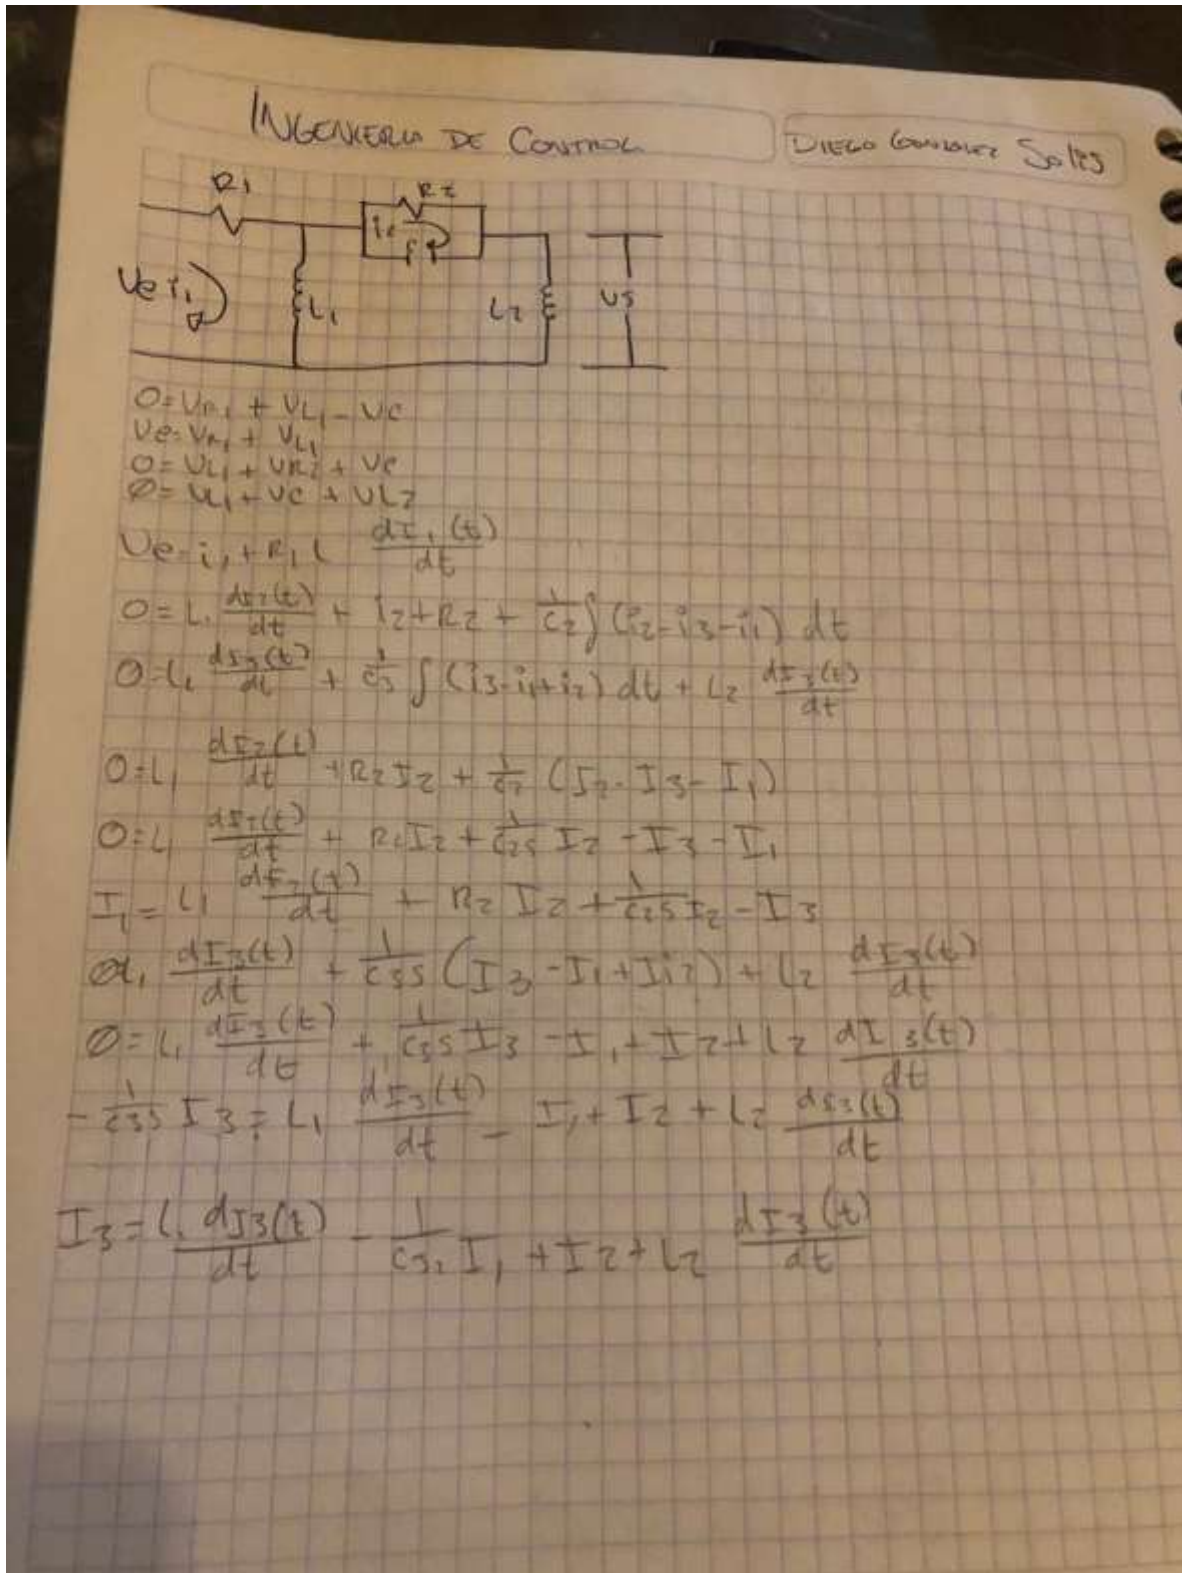 INGENIERIA DE CONTROL
DIEGO GONZALEZ Solis
R1 R2
i2
Ve i1 L1 L2 Vs
0=VR1 + VL1 - Ve
Ve=VR1 + VL1
0=VL1 + VR2 + VC
0=VL1 + VC + VL2
Ve=i1+R1 L dI1(t)/dt
0=L1 dI2(t)/dt + i2+R2 + 1/C2 ∫(i2-i3-i1) dt
0=L1 dI3(t)/dt + 1/C3 ∫(i3-i1+i2) dt + L2 dI3(t)/dt
0=L1 dI2(t)/dt +R2I2 + 1/C2 (I2-I3-I1)
0=L1 dI2(t)/dt + R2I2+ 1/C2S I2 -I3-I1
I1= L1 dI2(t)/dt + R2 I2 + 1/C2S I2-I3
0=L1 dI3(t)/dt + 1/C3S (I3-I1+Ii2) + L2 dI3(t)/dt
0=L1 dI3(t)/dt + 1/C3S I3 -I1+I2+L2 dI3(t)/dt
- 1/C3S I3= L1 dI3(t)/dt - I1+I2 + L2 dI3(t)/dt
I3=L1 dI3(t)/dt - 1/C3S I1+I2+L2 dI3(t)/dt